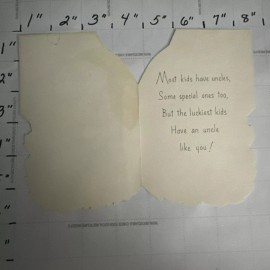 1" 2" 3" 4" 5" 6" 7" 8"
1"
2"
3"
4"
5"
6"
Most kids have uncles,
Some special ones too,
But the luckiest kids
Have an uncle
like you!